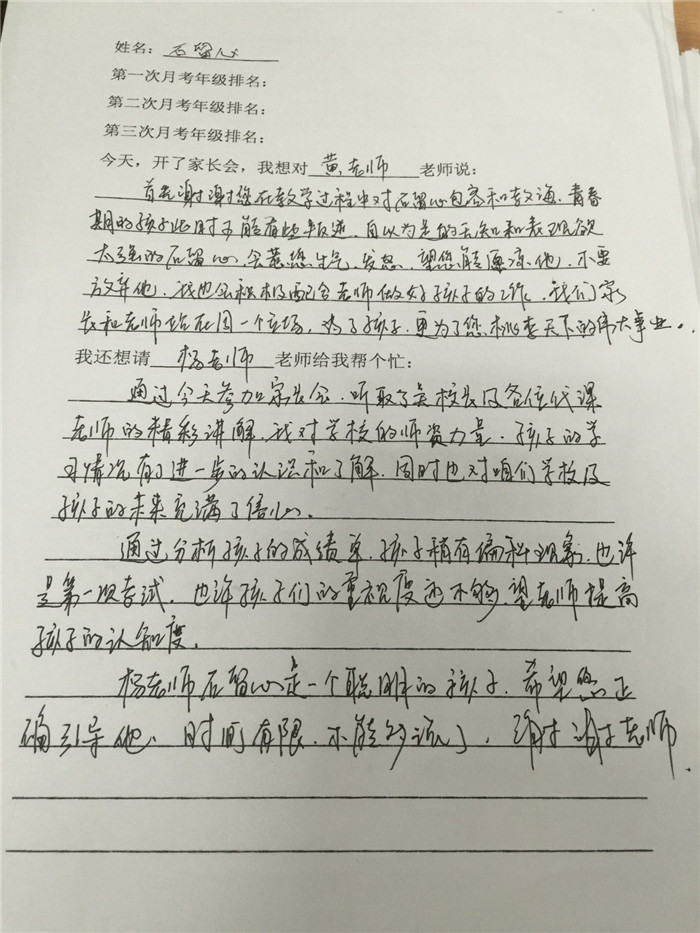 姓名：石留心
第一次月考年级排名：
第二次月考年级排名：
第三次月考年级排名：
今天，开了家长会，我想对 黄老师 老师说：
首先谢谢您在教学过程中对石留心包容和教诲，青春
期的孩子此时可能有些叛逆，自以为是的无知和表现欲
太强的石留心会惹您生气、发怒，望您能原谅他，不要
放弃他，我也会积极配合老师做好孩子的工作，我们家
长和老师站在同一个立场，为了孩子，更为了您桃李天下的伟大事业。
我还想请 杨老师 老师给我帮个忙：
通过今天参加家长会，听取了吴校长及各位代课
老师的精彩讲解，我对学校的师资力量，孩子的学
习情况有了进一步的认识和了解，同时也对咱们学校及
孩子的未来充满了信心。
通过分析孩子的成绩单，孩子稍有偏科现象，也许
是第一次考试，也许孩子们的重视度还不够，望老师提高
孩子的认知度。
杨老师石留心是一个聪明的孩子，希望您正
确引导他，时间有限，不能多说了，谢谢老师.